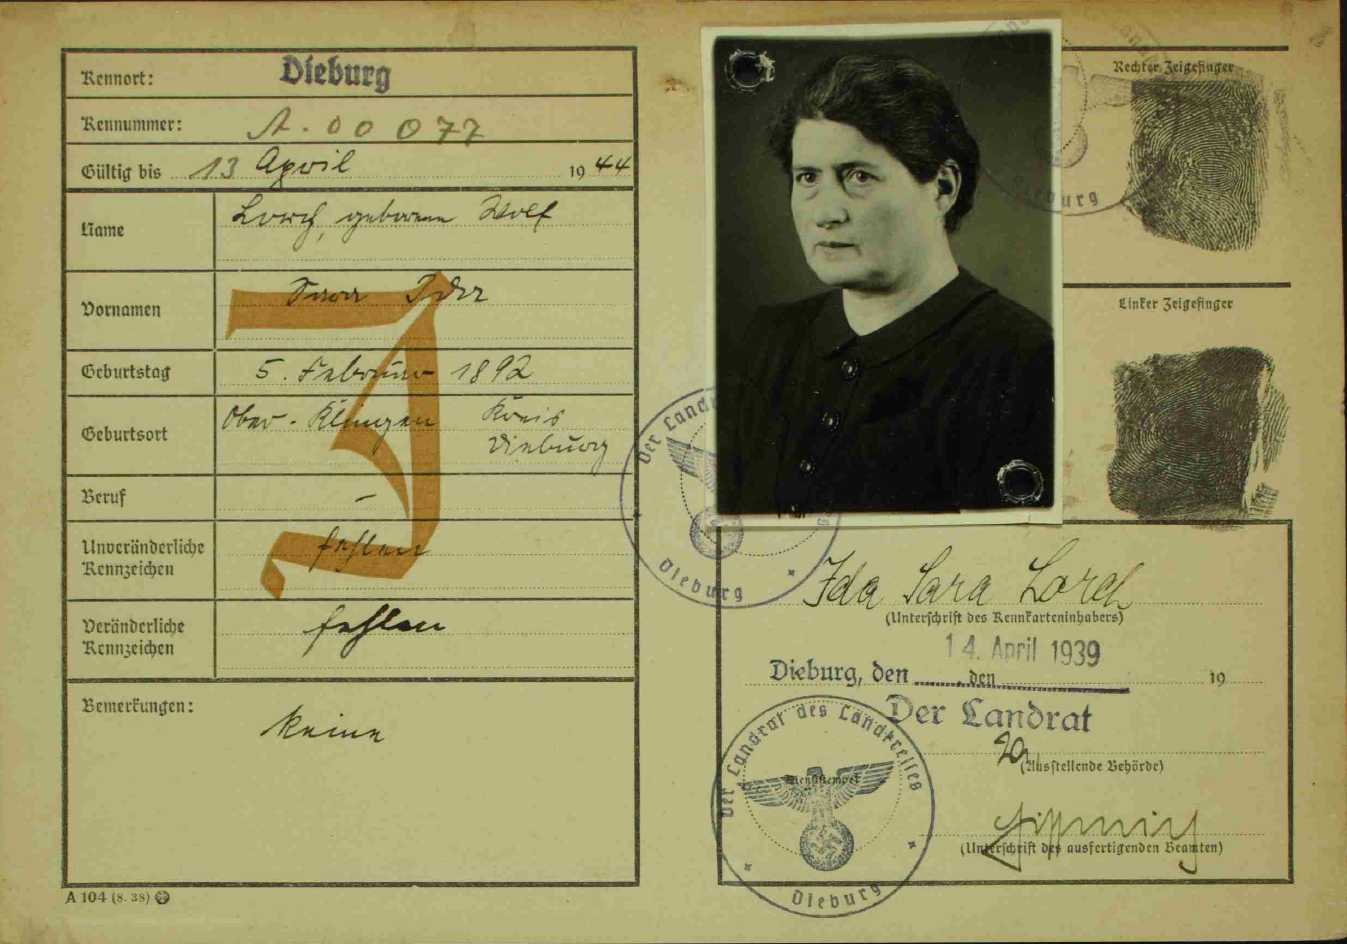 Kennort: Dieburg
Kennummer: A. 00077
Gültig bis 13 April 1944
Name Lorch, geborene Wolf
Vornamen Sara Ida
Geburtstag 5. Februar 1892
Geburtsort Ober-Klingen Kreis
Dieburg
Beruf –
Unveränderliche
Kennzeichen fehlen
Veränderliche
Kennzeichen fehlen
Bemerkungen: keine
J
A 104 (8. 38)
Rechter Zeigefinger
Dieburg
Linker Zeigefinger
Der Landrat
Dieburg
Ida Sara Lorch
(Unterschrift des Kennkarteninhabers)
14. April 1939
Dieburg, den ........, den 19
Der Landrat
(Ausstellende Behörde)
(Unterschrift des ausfertigenden Beamten)
Der Landrat des Landkreises
Dienststempel
Dieburg